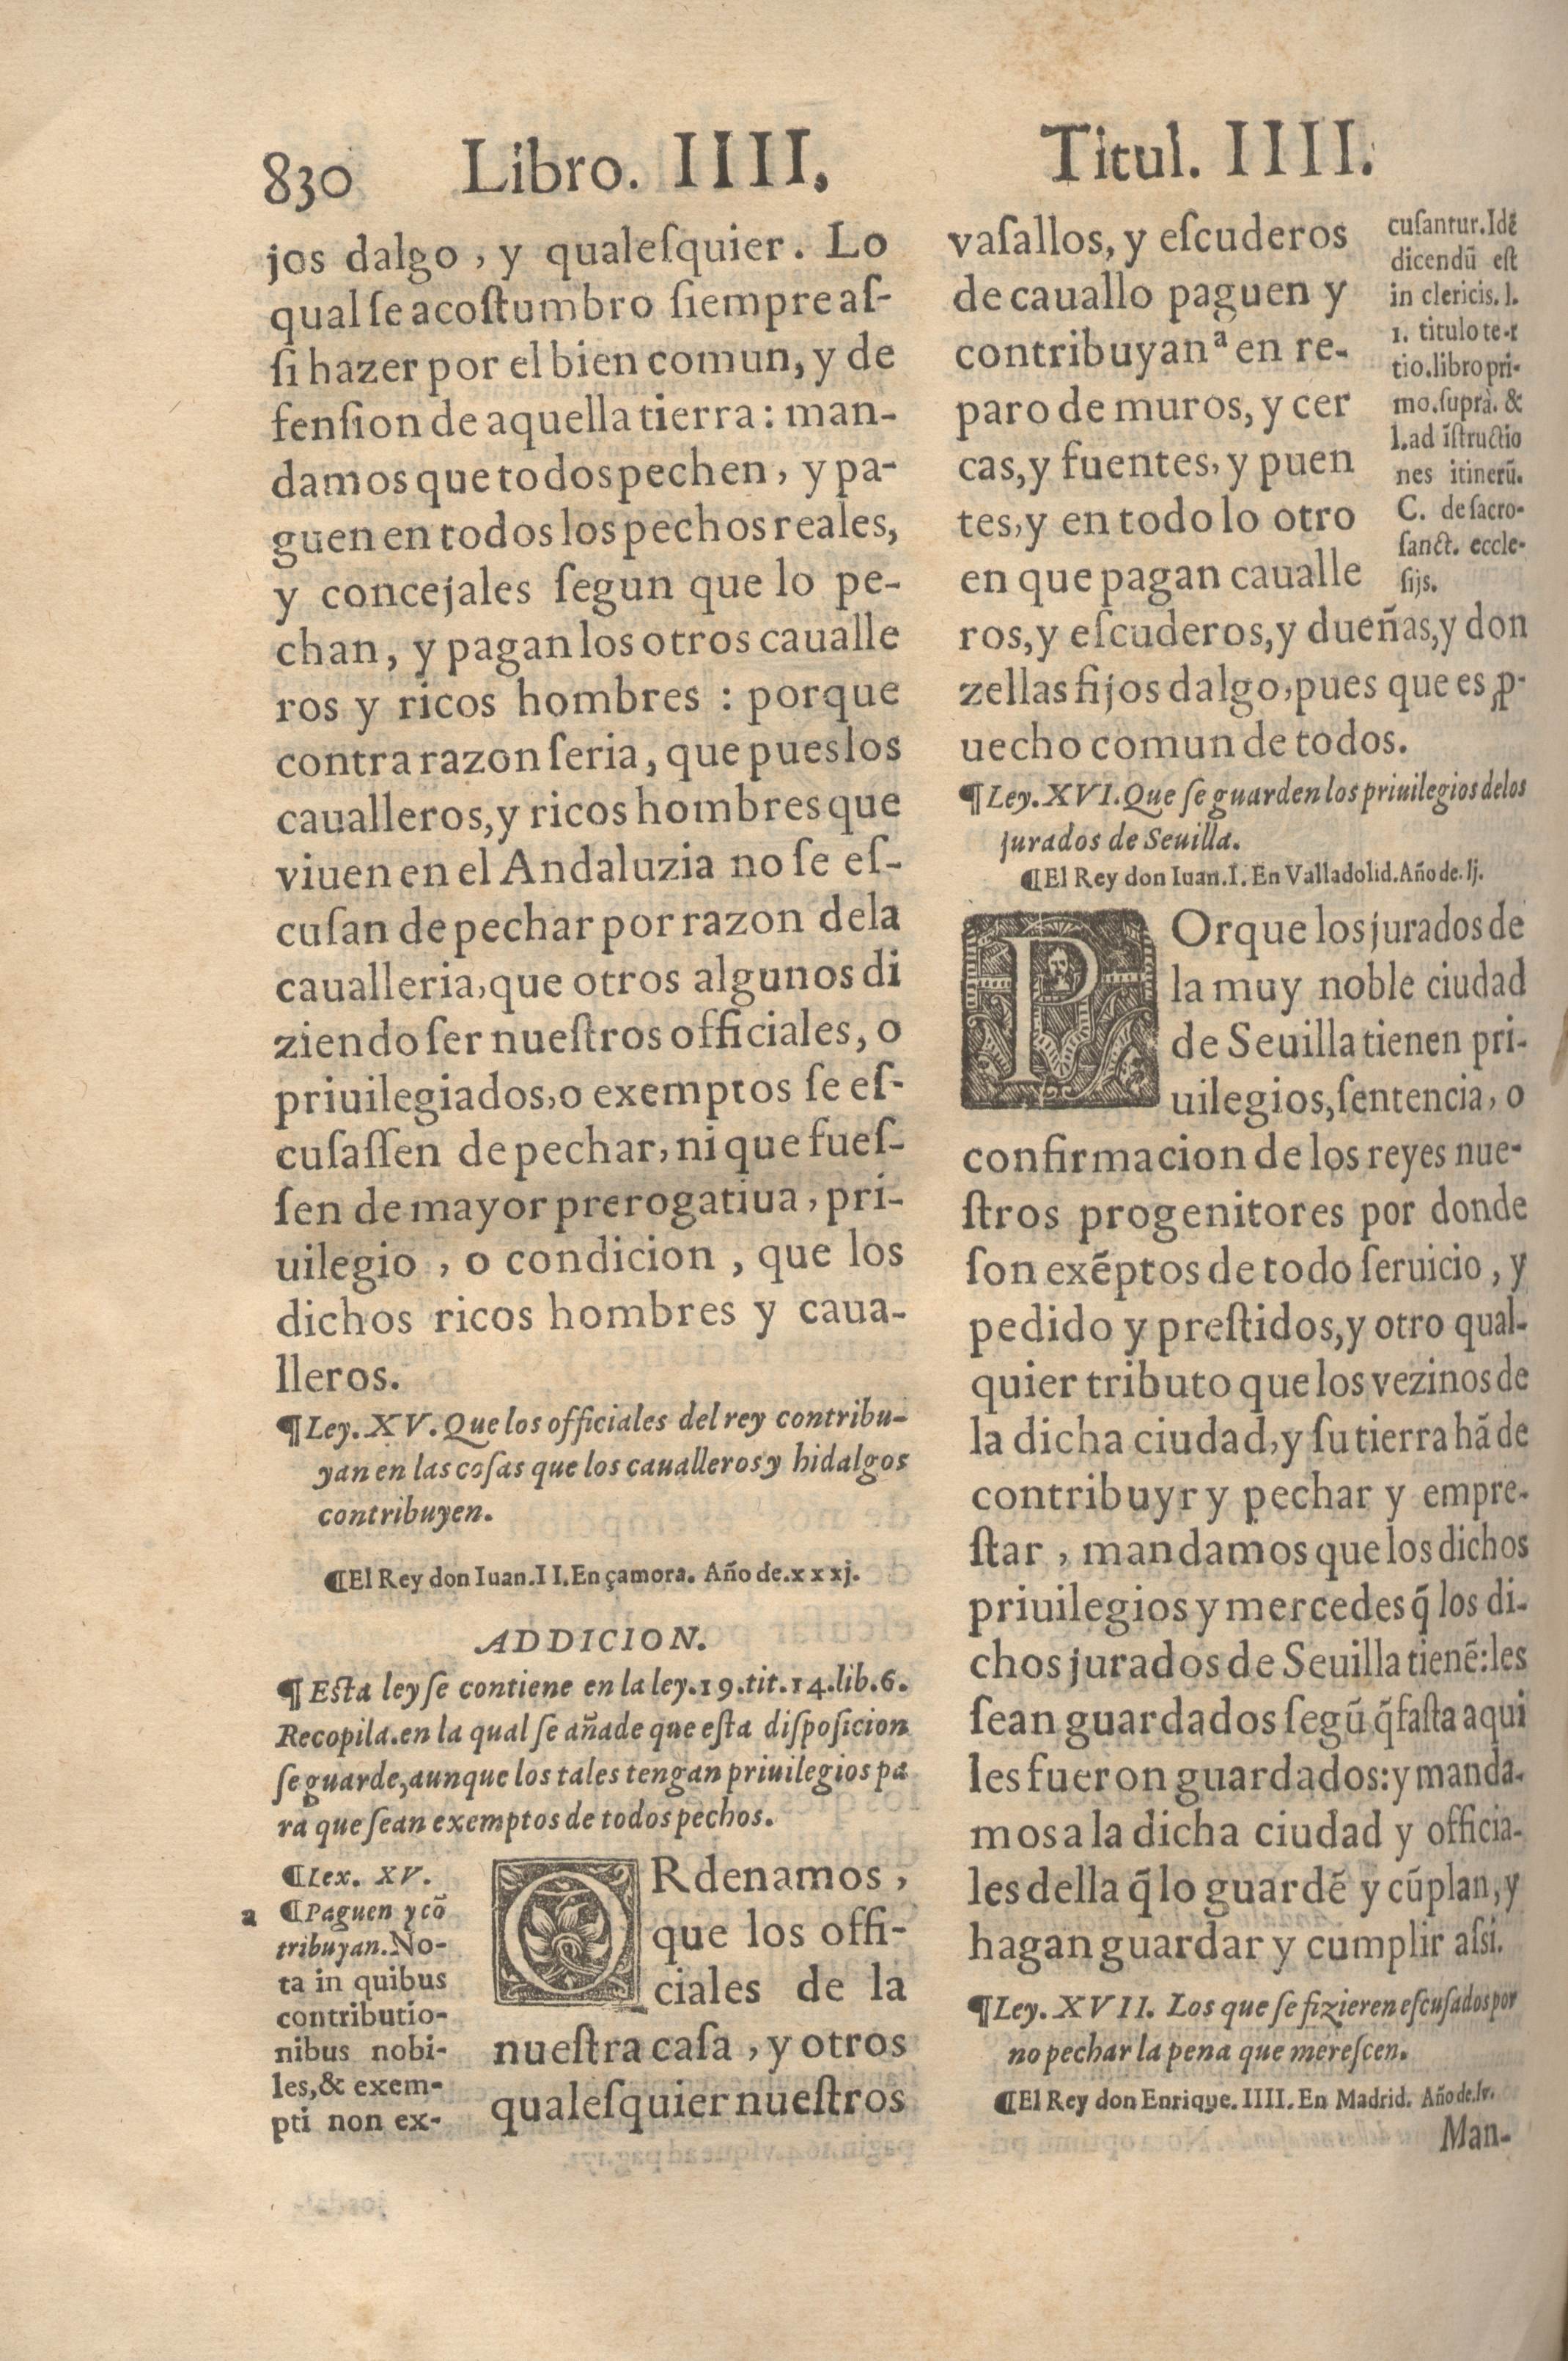 830 Libro. IIII. Titul. IIII.
jos dalgo, y qualesquier. Lo
qual se acostumbro siempre as-
si hazer por el bien comun, y de
fension de aquella tierra: man-
damos que todos pechen, y pa-
guen en todos los pechos reales,
y concejales segun que lo pe-
chan, y pagan los otros caualle
ros y ricos hombres: porque
contra razon seria, que pues los
caualleros, y ricos hombres que
viuen en el Andaluzia no se es-
cusan de pechar por razon dela
caualleria, que otros algunos di
ziendo ser nuestros officiales, o
priuilegiados, o exemptos se es-
cusassen de pechar, ni que fues-
sen de mayor prerogatiua, pri-
uilegio, o condicion, que los
dichos ricos hombres y caua-
lleros.
¶ Ley. XV. Que los officiales del rey contribu-
yan en las cosas que los caualleros y hidalgos
contribuyen.
¶ El Rey don Iuan. II. En çamora. Año de. xxxj.
ADDICION.
¶ Esta ley se contiene en la ley. 19. tit. 14. lib. 6.
Recopila. en la qual se añade que esta disposicion
se guarde, aunque los tales tengan priuilegios pa
ra que sean exemptos de todos pechos.
¶ Lex. XV.
a ¶ Paguen y cō
tribuyan. No-
ta in quibus
contributio-
nibus nobi-
les, & exem-
pti non ex-
ORdenamos,
que los offi-
ciales de la
nuestra casa, y otros
qualesquier nuestros
vasallos, y escuderos
de cauallo paguen y
contribuyan ª en re-
paro de muros, y cer
cas, y fuentes, y puen
tes, y en todo lo otro
en que pagan caualle
ros, y escuderos, y dueñas, y don
zellas fijos dalgo, pues que es ꝓ-
uecho comun de todos.
cusantur. Idē
dicendū est
in clericis. l.
1. titulo te-r
tio. libro pri-
mo. suprà. &
l. ad īstructio
nes itinerū.
C. de sacro-
sanct. eccle-
sijs.
¶ Ley. XVI. Que se guarden los priuilegios de los
jurados de Seuilla.
¶ El Rey don Iuan. I. En Valladolid. Año de. lj.
POrque los jurados de
la muy noble ciudad
de Seuilla tienen pri-
uilegios, sentencia, o
confirmacion de los reyes nue-
stros progenitores por donde
son exēptos de todo seruicio, y
pedido y prestidos, y otro qual-
quier tributo que los vezinos de
la dicha ciudad, y su tierra hā de
contribuyr y pechar y empre-
star, mandamos que los dichos
priuilegios y mercedes q̃ los di-
chos jurados de Seuilla tienē: les
sean guardados segū q̃ fasta aqui
les fueron guardados: y manda-
mos a la dicha ciudad y officia-
les della q̃ lo guardē y cūplan, y
hagan guardar y cumplir assi.
¶ Ley. XVII. Los que se fizieren escusados por
no pechar la pena que merescen.
¶ El Rey don Enrique. IIII. En Madrid. Año de. lv.
Man-